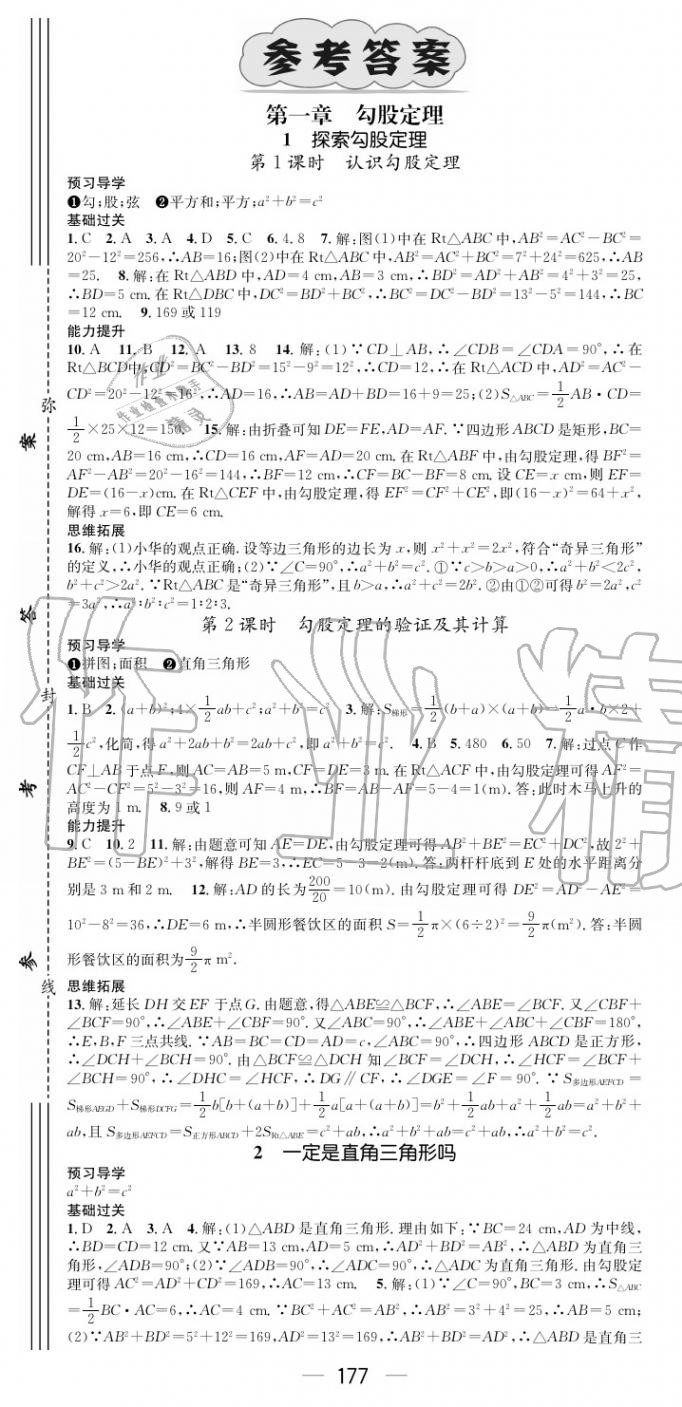 参考答案
第一章 勾股定理
1 探索勾股定理
第1课时 认识勾股定理
预习导学
❶勾;股;弦 ❷平方和;平方;a²+b²=c²
基础过关
1. C 2. A 3. A 4. D 5. C 6. 4.8 7. 解:图(1)中在 Rt△ABC 中,AB²=AC²-BC²=
20²-12²=256,∴AB=16;图(2)中在 Rt△ABC 中,AB²=AC²+BC²=7²+24²=625,∴AB
=25. 8. 解:在 Rt△ABD 中,AD=4 cm,AB=3 cm,∴BD²=AD²+AB²=4²+3²=25,
∴BD=5 cm. 在 Rt△DBC 中,DC²=BD²+BC²,∴BC²=DC²-BD²=13²-5²=144,∴BC
=12 cm. 9. 169 或 119
能力提升
10. A 11. B 12. A 13. 8 14. 解:(1)∵CD⊥AB,∴∠CDB=∠CDA=90°,∴在
Rt△BCD中,CD²=BC²-BD²=15²-9²=12²,∴CD=12,∴在 Rt△ACD 中,AD²=AC²-
CD²=20²-12²=16²,∴AD=16,∴AB=AD+BD=16+9=25;(2)S△ABC=1/2 AB·CD=
1/2×25×12=150. 15. 解:由折叠可知 DE=FE,AD=AF. ∵四边形 ABCD 是矩形,BC=
20 cm,AB=16 cm,∴CD=16 cm,AF=AD=20 cm. 在 Rt△ABF 中,由勾股定理,得 BF²=
AF²-AB²=20²-16²=144,∴BF=12 cm,∴CF=BC-BF=8 cm. 设 CE=x cm,则 EF=
DE=(16-x)cm. 在 Rt△CEF 中,由勾股定理,得 EF²=CF²+CE²,即(16-x)²=64+x²,
解得 x=6,即 CE=6 cm.
思维拓展
16. 解:(1)小华的观点正确. 设等边三角形的边长为 x,则 x²+x²=2x²,符合“奇异三角形”
的定义,∴小华的观点正确;(2)∵∠C=90°,∴a²+b²=c². ①∵c>b>a>0,∴a²+b²<2c²,
b²+c²>2a². ∵Rt△ABC 是“奇异三角形”,且 b>a,∴a²+c²=2b². ②由①②可得 b²=2a²,c²
=3a²,∴a²∶b²∶c²=1∶2∶3.
第2课时 勾股定理的验证及其计算
预习导学
❶拼图;面积 ❷直角三角形
基础过关
1. B 2. (a+b)²;4×1/2ab+c²;a²+b²=c² 3. 解:S梯形=1/2(b+a)×(a+b)=1/2a·b×2+
1/2c²,化简,得 a²+2ab+b²=2ab+c²,即 a²+b²=c². 4. B 5. 480 6. 50 7. 解:过点 C 作
CF⊥AB 于点 F,则 AC=AB=5 m,CF=DE=3 m. 在 Rt△ACF 中,由勾股定理可得 AF²=
AC²-CF²=5²-3²=16,则 AF=4 m,∴BF=AB-AF=5-4=1(m). 答:此时木马上升的
高度为 1 m. 8. 9 或 1
能力提升
9. C 10. 2 11. 解:由题意可知 AE=DE,由勾股定理可得 AB²+BE²=EC²+DC²,故 2²+
BE²=(5-BE)²+3²,解得 BE=3,∴EC=5-3=2(m). 答:两杆杆底到 E 处的水平距离分
别是 3 m 和 2 m. 12. 解:AD 的长为200/20=10(m). 由勾股定理可得 DE²=AD²-AE²=
10²-8²=36,∴DE=6 m,∴半圆形餐饮区的面积 S=1/2π×(6÷2)²=9/2π(m²). 答:半圆
形餐饮区的面积为9/2π m².
思维拓展
13. 解:延长 DH 交 EF 于点 G. 由题意,得△ABE≌△BCF,∴∠ABE=∠BCF. 又∠CBF+
∠BCF=90°,∴∠ABE+∠CBF=90°. 又∠ABC=90°,∴∠ABE+∠ABC+∠CBF=180°,
∴E,B,F 三点共线. ∵AB=BC=CD=AD=c,∠ABC=90°,∴四边形 ABCD 是正方形,
∴∠DCH+∠BCH=90°. 由△BCF≌△DCH 知∠BCF=∠DCH,∴∠HCF=∠BCF+
∠BCH=90°,∴∠DHC=∠HCF,∴DG∥CF,∴∠DGE=∠F=90°. ∵S多边形AEFCD=
S梯形AEGD+S梯形DCFG=1/2b[b+(a+b)]+1/2a[a+(a+b)]=b²+1/2ab+a²+1/2ab=a²+b²+
ab,且 S多边形AEFCD=S正方形ABCD+2S Rt△ABE=c²+ab,∴a²+b²+ab=c²+ab,∴a²+b²=c².
2 一定是直角三角形吗
预习导学
a²+b²=c²
基础过关
1. D 2. A 3. A 4. 解:(1)△ABD 是直角三角形. 理由如下:∵BC=24 cm,AD 为中线,
∴BD=CD=12 cm. 又∵AB=13 cm,AD=5 cm,∴AD²+BD²=AB²,∴△ABD 为直角三
角形,∠ADB=90°;(2)∵∠ADB=90°,∴∠ADC=90°,∴△ADC 为直角三角形. 由勾股定
理可得 AC²=AD²+CD²=169,∴AC=13 cm. 5. 解:(1)∵∠C=90°,BC=3 cm,∴S△ABC
=1/2BC·AC=6,∴AC=4 cm. ∵BC²+AC²=AB²,∴AB²=3²+4²=25,∴AB=5 cm;
(2)∵AB²+BD²=5²+12²=169,AD²=13²=169,∴AB²+BD²=AD²,∴△ABD 是直角三
177
弥
封
线
案
答
考
参
作业精